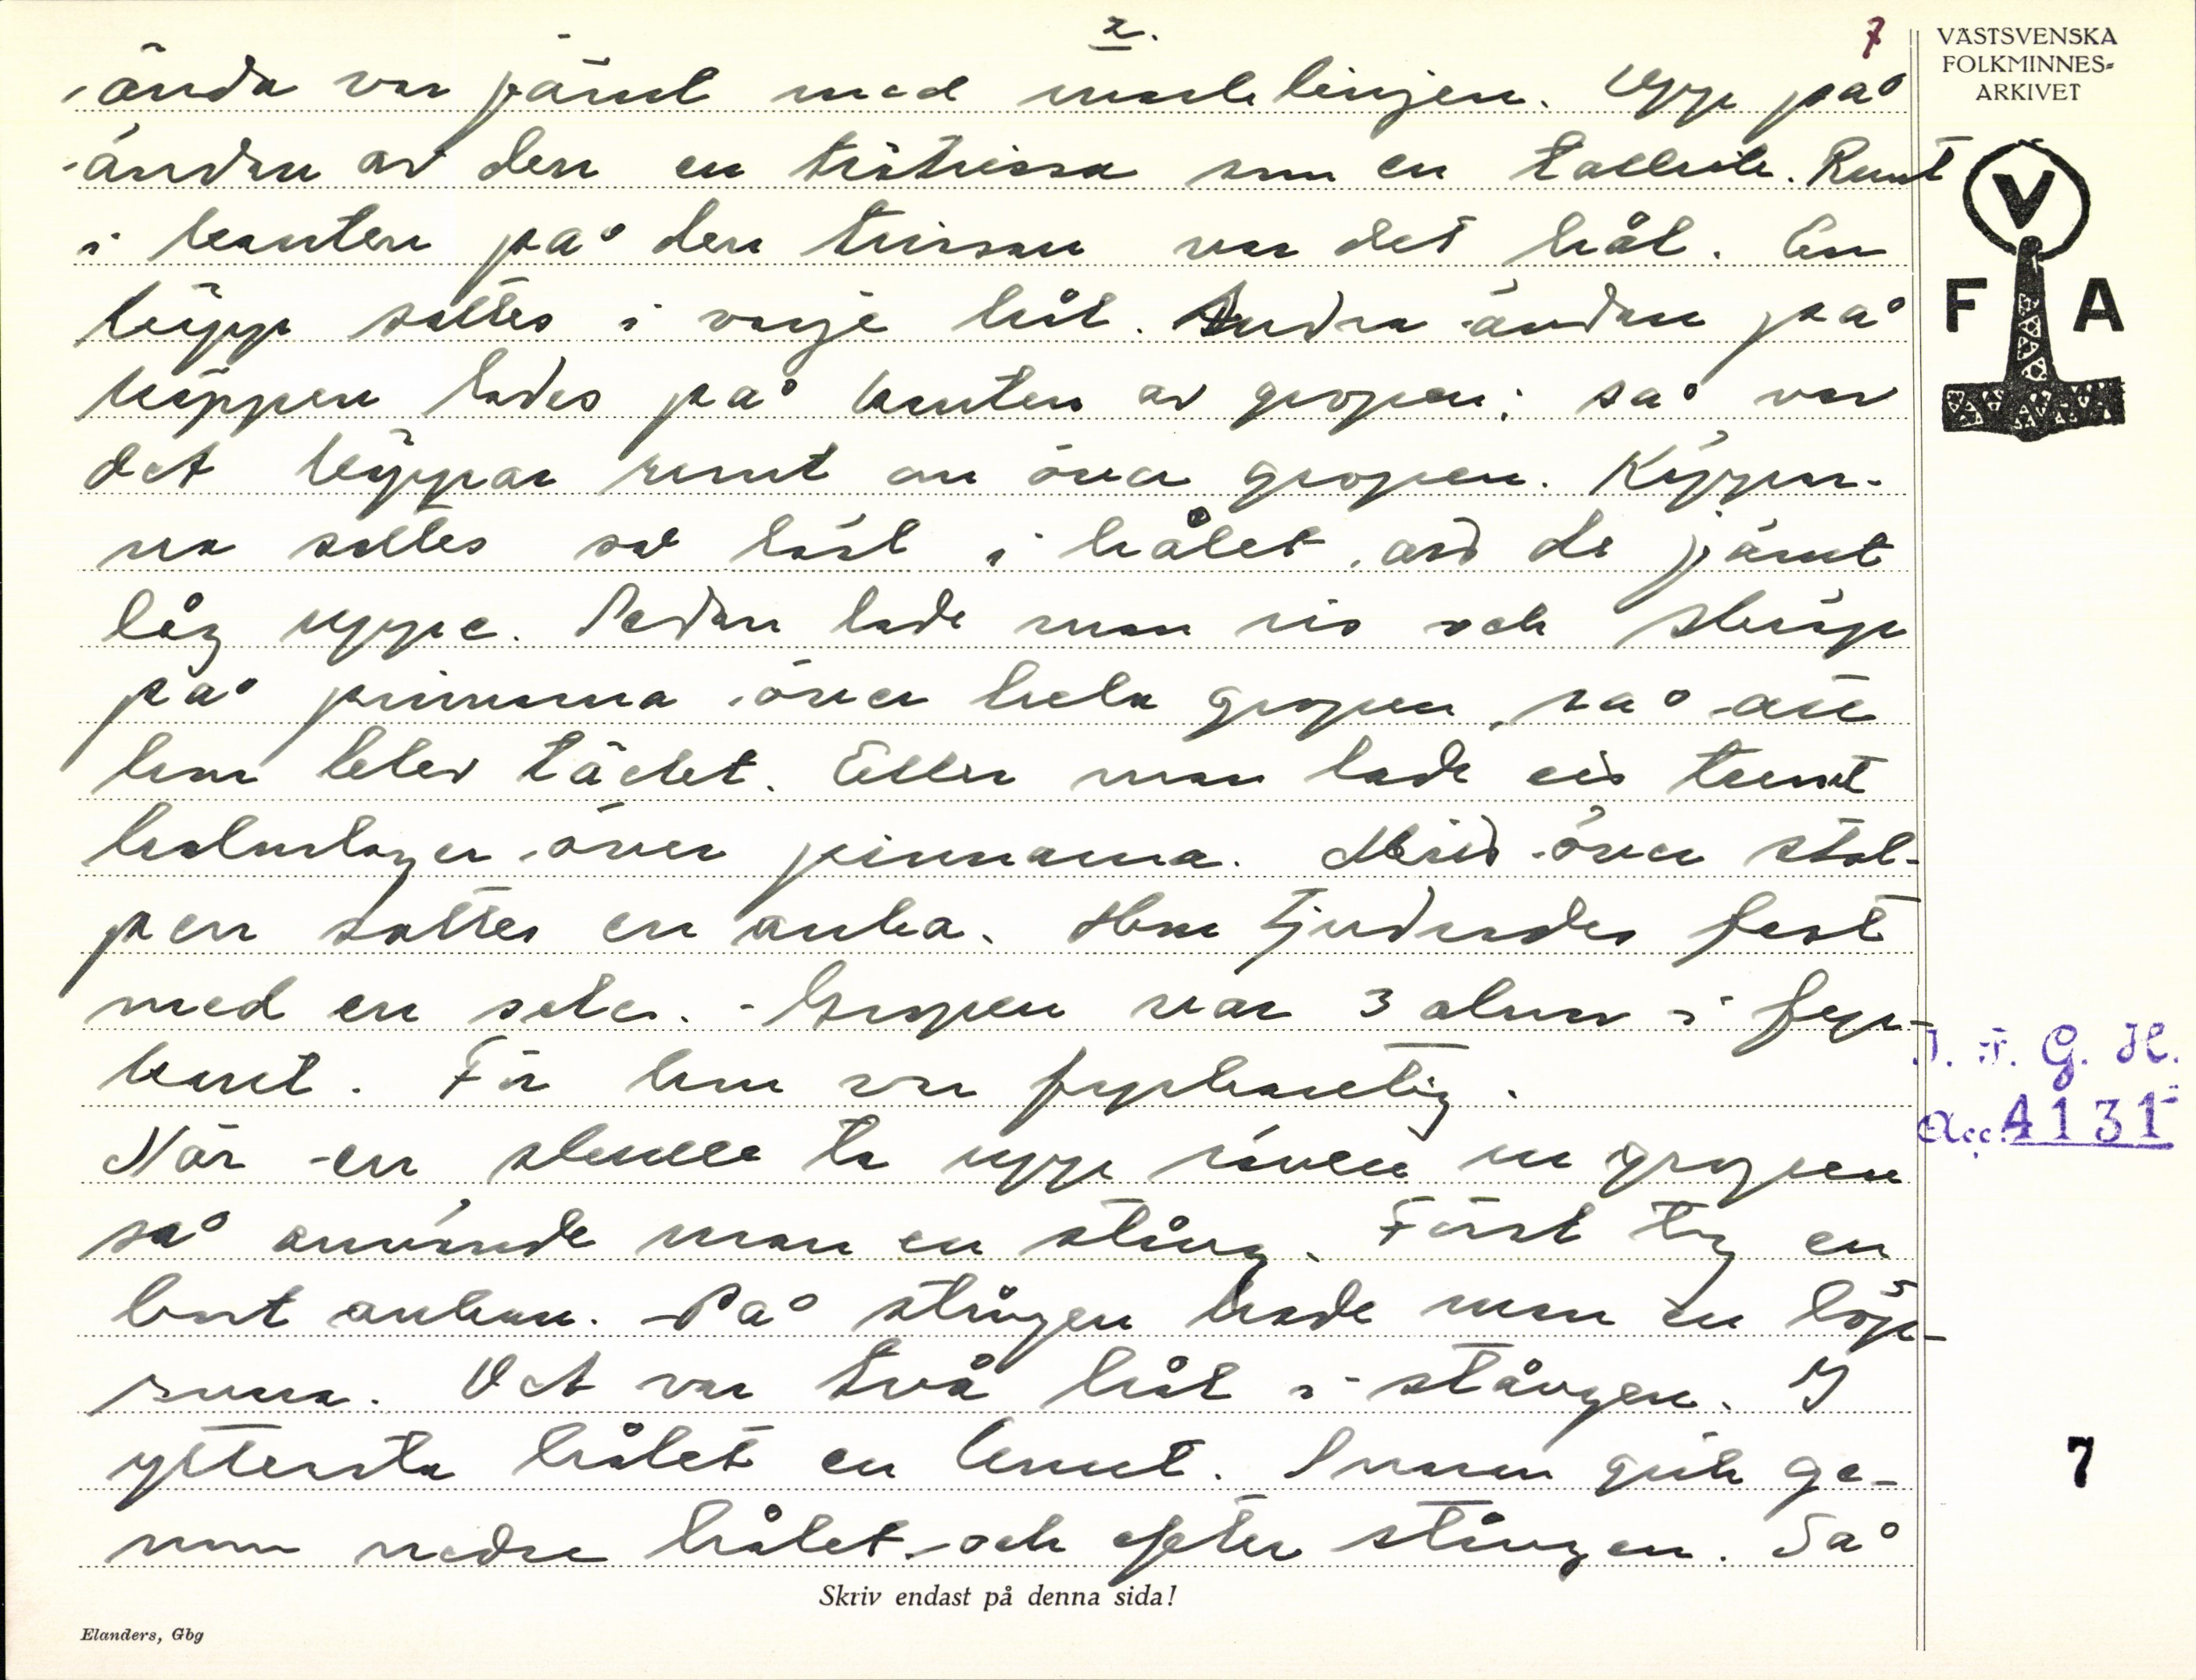 2.
7
VÄSTSVENSKA
FOLKMINNES-
ARKIVET
V
F A
ända var jämt med marklinjen. Upp på
ändan av den en trätrissa som en tallrik. Runt
i kanten på den trissan var det hål. En
käpp sattes i varje hål. Andra ändan på
käppen lades på kanten av gropen; så var
det käppar runt om över gropen. Käppar-
na sattes så löst i hålet, att de jämt
låg uppe. Sedan lade man ris och skräp
på pinnarna över hela gropen, så att
hon blev täckt. Eller man lade ett tunt
halmlager över pinnarna. Mitt över stol-
pen sattes en anka. Hon tjudrades fast
med en sele. - Gropen var 3 alnar i fyr-
kant. För hon var fyrkantig.
När en skulle ta upp räven ur gropen
så använde man en stång. Först tog en
bort ankan. På stången hade man en löp-
snara. Det var två hål i stången. I
yttersta hålet en knut. Snaran gick ge-
nom nedre hålet och efter stången. Så
I. F. G. H.
Acc. 4131
7
Skriv endast på denna sida!
Elanders, Gbg